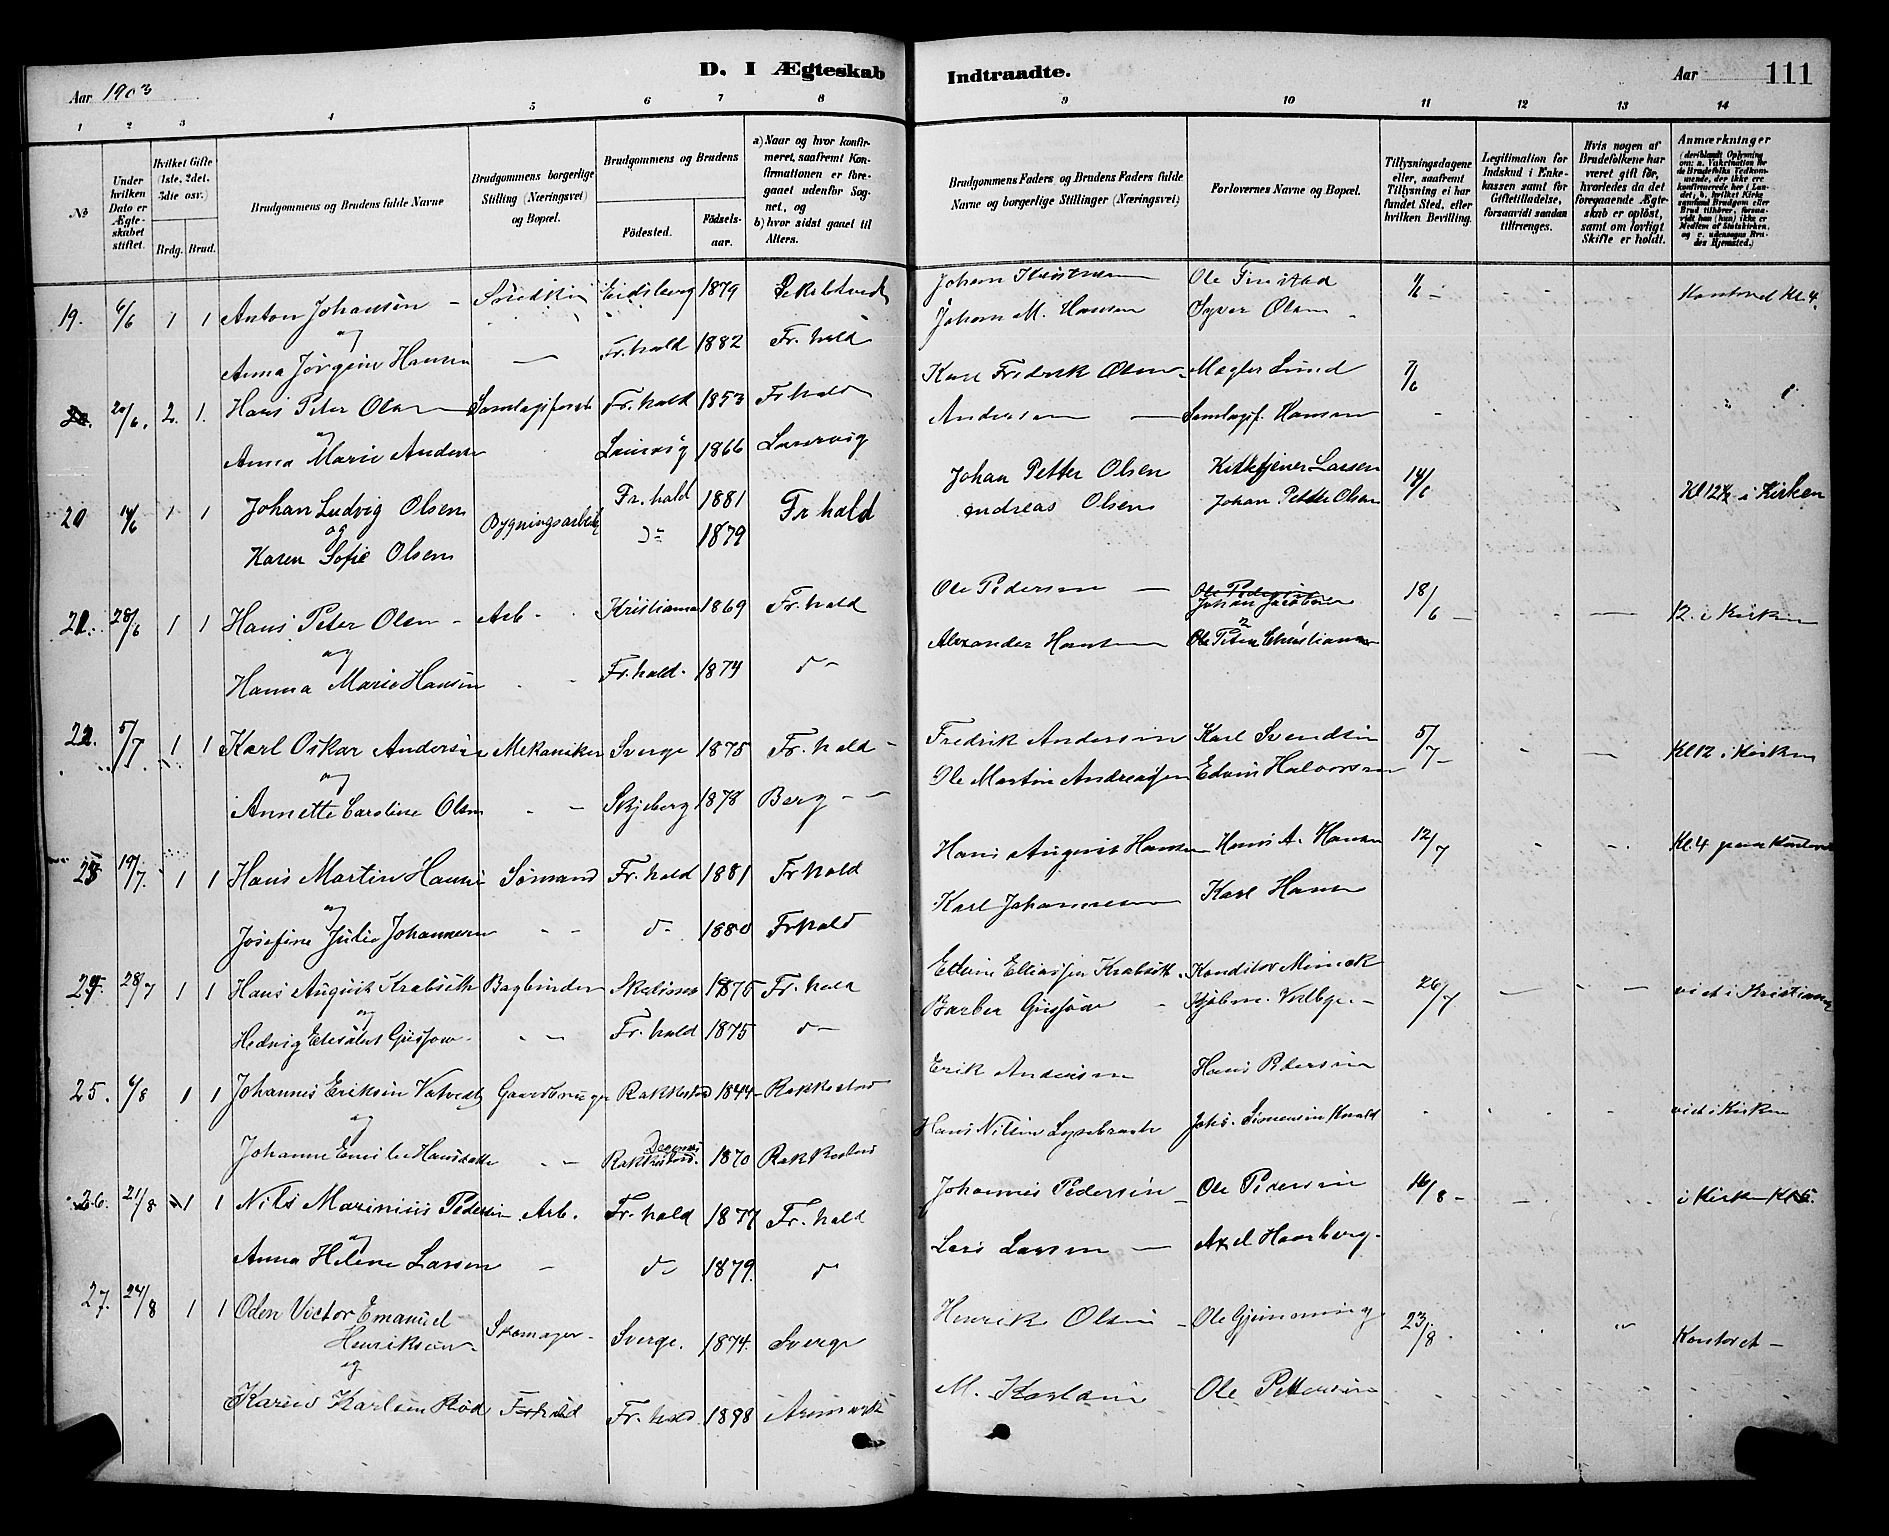 D. I Ægteskab Indtraadte.
Aar 1903
Aar 111
1 2 3 4 5 6 7 8 9 10 11 12 13 14
№
Under hvilken Dato er Ægteskabet stiftet.
Hvilket Gifte (1ste, 2det, 3die osv.)
Brdg. Brud.
Brudgommens og Brudens fulde Navne
Brudgommens borgerlige Stilling (Næringsvei) og Bopæl.
Brudgommens og Brudens
Fødested.
Fødselsaar.
a) Naar og hvor konfirmeret, saafremt Konfirmationen er foregaaet udenfor Sognet, og
b) hvor sidst gaaet til Alters.
Brudgommens Faders og Brudens Faders fulde Navne og borgerlige Stillinger (Næringsvei)
Forlovernes Navne og Bopæl.
Tillysningsdagene eller, saafremt Tillysning ei har fundet Sted, efter hvilken Bevilling.
Legitimation for Indskud i Enkekassen samt for Giftetilladelse, forsaavidt saadan tiltrænges.
Hvis nogen af Brudefolkene har været gift før, hvorledes da det foregaaende Ægteskab er opløst, samt om lovligt Skifte er holdt.
Anmærkninger
19. 6/6 1 1 Anton Johansen Eidsberg 1879 Ole Finstad Kontoret Kl. 4.
og Johan M. Hansen Syver Olsen
Anna Jørgine Hansen Fr.hald 1882 Fr.hald
20/6. 2. 1. Hans Peter Olsen Fr.hald 1853 Frhald Karl Fredrik Olsen Mægler Lund 7/6
og Andersen Samlagsf. Hansen
Anna Marie Andersen 1866 Laurvig
20 14/6 1 1 Johan Ludvig Olsen Bygningsarbeid Fr.hald 1881 Fr hald Johan Petter Olsen Kirketjener Larsen 14/6 Kl 12½ i Kirken
og Andreas Olsen Johan Petter Olsen
Karen Sofie Olsen Do 1879
21. 28/6 1 1 Hans Peter Olsen Arb. Kristiania 1869 Fr.hald Ole Pedersen Ole Pedersen Johan Jacobsen 18/6 12. i Kirken
og Alexander Hansen Ole Peter Christiansen
Hanna Marie Hansen Fr.hald. 1874 do
22. 5/7 1 1 Karl Oskar Andersen Mekaniker Sverge 1875 Fr.hald Fredrik Andersen Karl Svendsen 5/7 Kl 12 i Kirken
og Ole Martin Andreassen Edvin Halvorsen
Annette Caroline Olsen Skjeberg 1878 Berg
23 19/7. 1 1 Hans Martin Hansen Sømand Fr.hald 1881 Frhald Hans August Hansen Hans A. Hansen 12/7 Kl. 4 paa Kontoret
og Karl Johannesen Karl Hansen
Josefine Julie Johannesen do 1880 Frhald
24. 28/7 1 1 Hans August Krabseth Bogbinder 1875 Fr.hald Edvin Eliassen Krabseth Konditor 26/7 viet i Kristiania
og Barber
Hedvig Elisabet Fr.hald 1875 do
25. 6/8 1 1 Johannes Eriksen Gaardbruger Rakkestad 1844 Rakkestad Erik Andersen Hans Pedersen viet i Kirken
og Hans Nilsen
Johanne Emilie Hansdatter Degernes Rakkestad. 1870 Rakkestad
26. 21/8 1 1 Nils Marinius Pedersen Arb. Fr.hald 1877 Fr.hald Johannes Pedersen Ole Pedersen 16/8 i Kirken
og Lars Larsen Axel Haarberg.
Anna Helene Larsen do 1879. do
27. 24/8 1 1 Oden Victor Emanuel Henriksen Skomager Sverge. 1874. Sverge Henrik Olsen 23/8. Kontoret
og M. Karlsen Ole Pettersen
Karlsen Rød Fr.hald. 1898